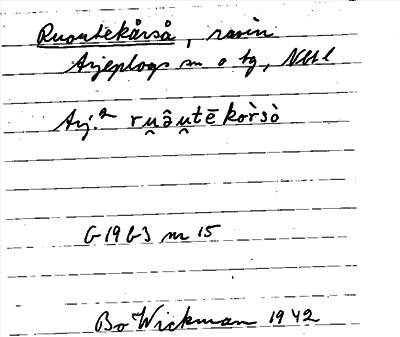 Ruoutekårså, ravin
Arjeplogs sn o tg, Nbtl
Arj. ru̯ȃu̯tē kor̀sò
G 19 G3 nr 15
Bo Wickman 1942